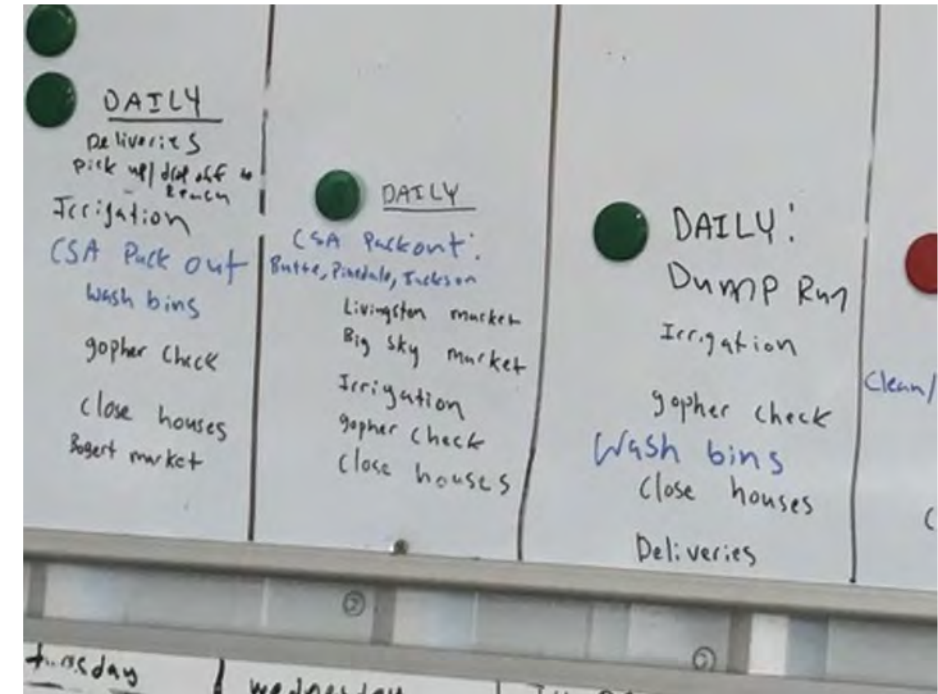 DAILY
Deliveries
pick up/drop off to
Irrigation
CSA Pack out
Wash bins
gopher check
close houses
Bogert market
DAILY
CSA Packout:
Butte, Pinedale, Jackson
Livingston market
Big Sky market
Irrigation
gopher check
close houses
DAILY:
Dump Run
Irrigation
gopher check
Wash bins
Close houses
Deliveries
Clean/
(
2
wednesday